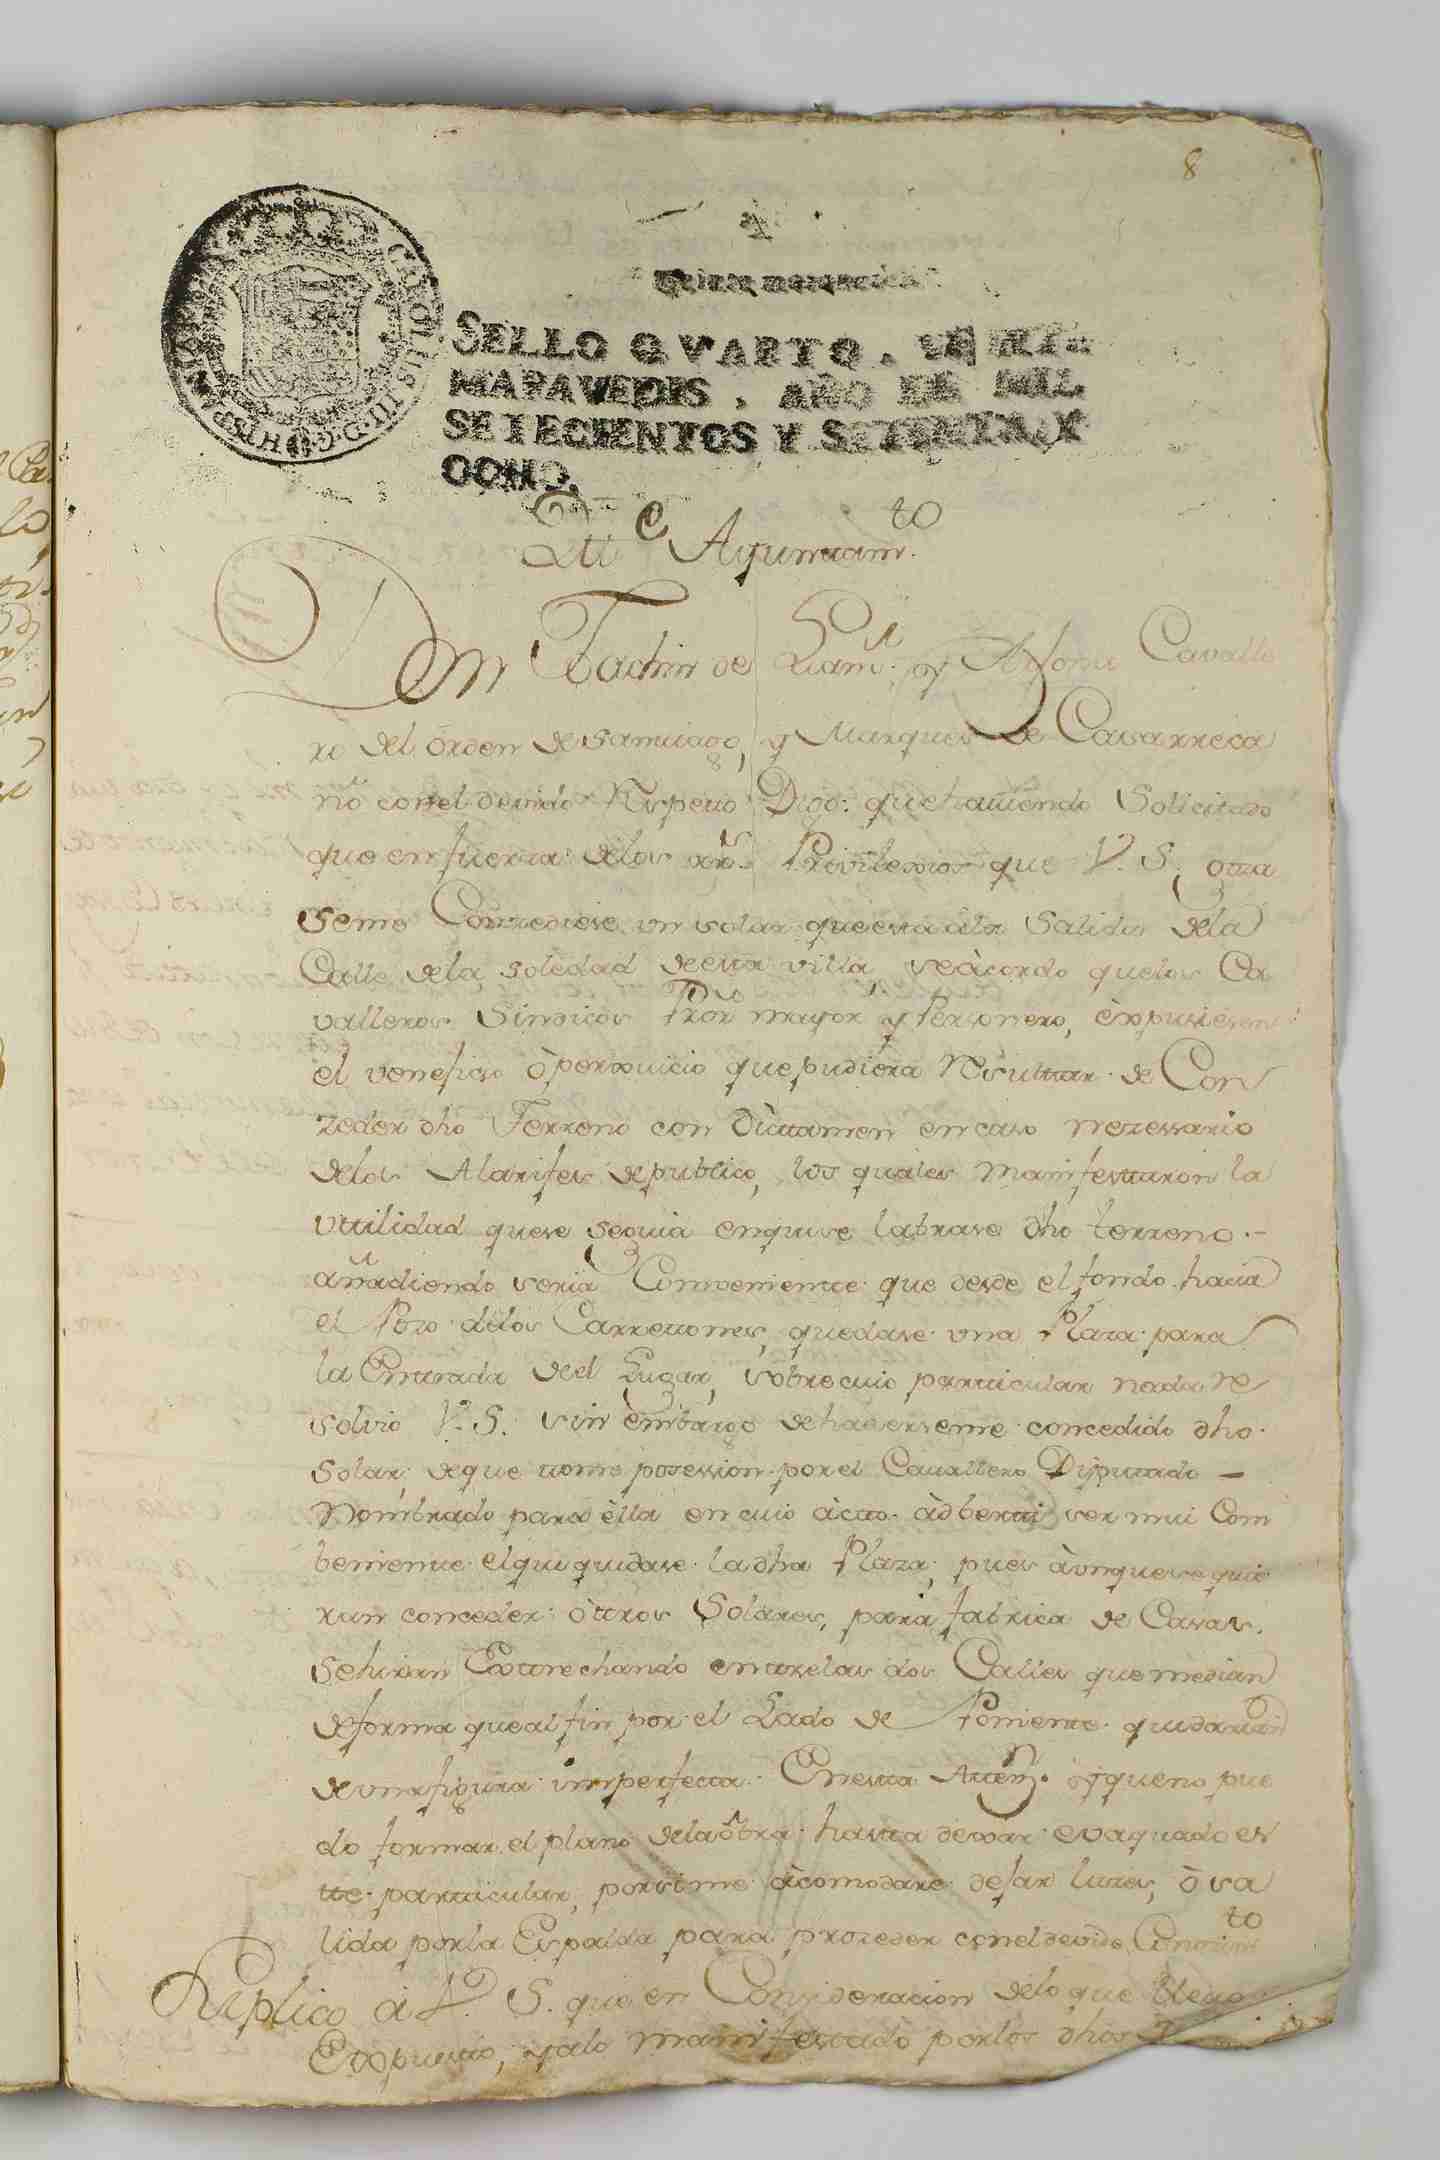 8
Veinte maravedis
SELLO QVARTO, VEINTE
MARAVEDIS, AÑO DE MIL
SETECIENTOS Y SETENTA Y
OCHO.
CAROLUS III D G HISP
Ayuntam.to
Don Jachin de y Cavalle
ro del orden de Santiago, y Marques de Casarrecaño
con el devido Respeto Digo: que haviendo Solicitado
que en fuerza de los rs. Privilexios que V. S. goza
se me Conzediese un solar que esta à la Salida de la
Calle de la Soledad de esta villa, se àcordo que los Ca
valleros Sindicos Pror. mayor y Personero, èxpusiesen
el veneficio ò perxuicio que pudiera Resultar de Con
zeder dho Terreno con Dictamen en caso nezessario
delos Alarifes de publico, los quales manifestaron la
utilidad que se seguia en que se labrase dho terreno.-
añadiendo seria Conveniente que desde el fondo hacia
el Pozo delos Carretones, quedase una Plaza para
la Entrada del Lugar, sobre cuio particular nada re
solvio V. S. sin embargo de haverseme concedido dho
Solar, de que tome posession por el Cavallero Diputado -
Nombrado para èlla en cuio àcto àdberti ser mui Com
beniente el que quedase la dha Plaza, pues àunque se quie
ran conceder òtros Solares, para fabrica de Casas,
se hiran Extrechando entre las dos Calles que median
de forma que al fin por el Lado de Poniente quedarian
de una figura imperfecta. En esta Atenz.on y que no pue
do formar el plano de la obra hasta dexar evaquado es
te particular, por si me àcomodare dejar luzes, ò sa
lida por la Espalda para prozeder con el devido Conozim.to
Suplico à V. S. que en Consideracion de lo que llevo
Expuesto, y a lo manifestado por los dhos